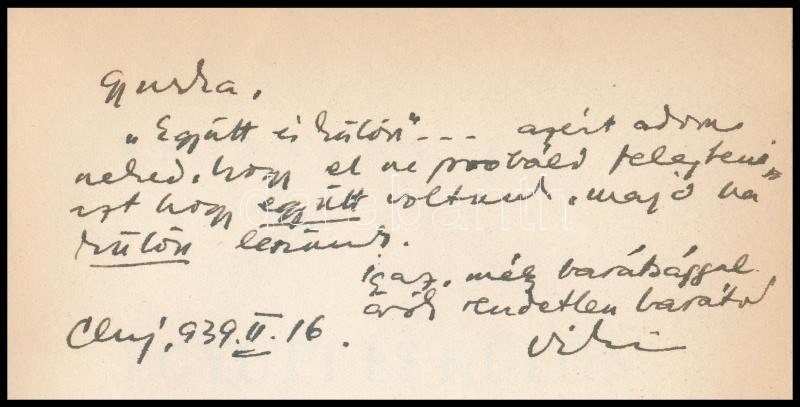 Gyurka,
„Együtt és külön" --- azért adom
neked, hogy el ne próbáld felejteni
azt hogy együtt voltunk, majd ha
külön leszünk.
Igaz, mély barátsággal
örök rendetlen barátod
Cluj, 939.II.16. Viki
darabanth